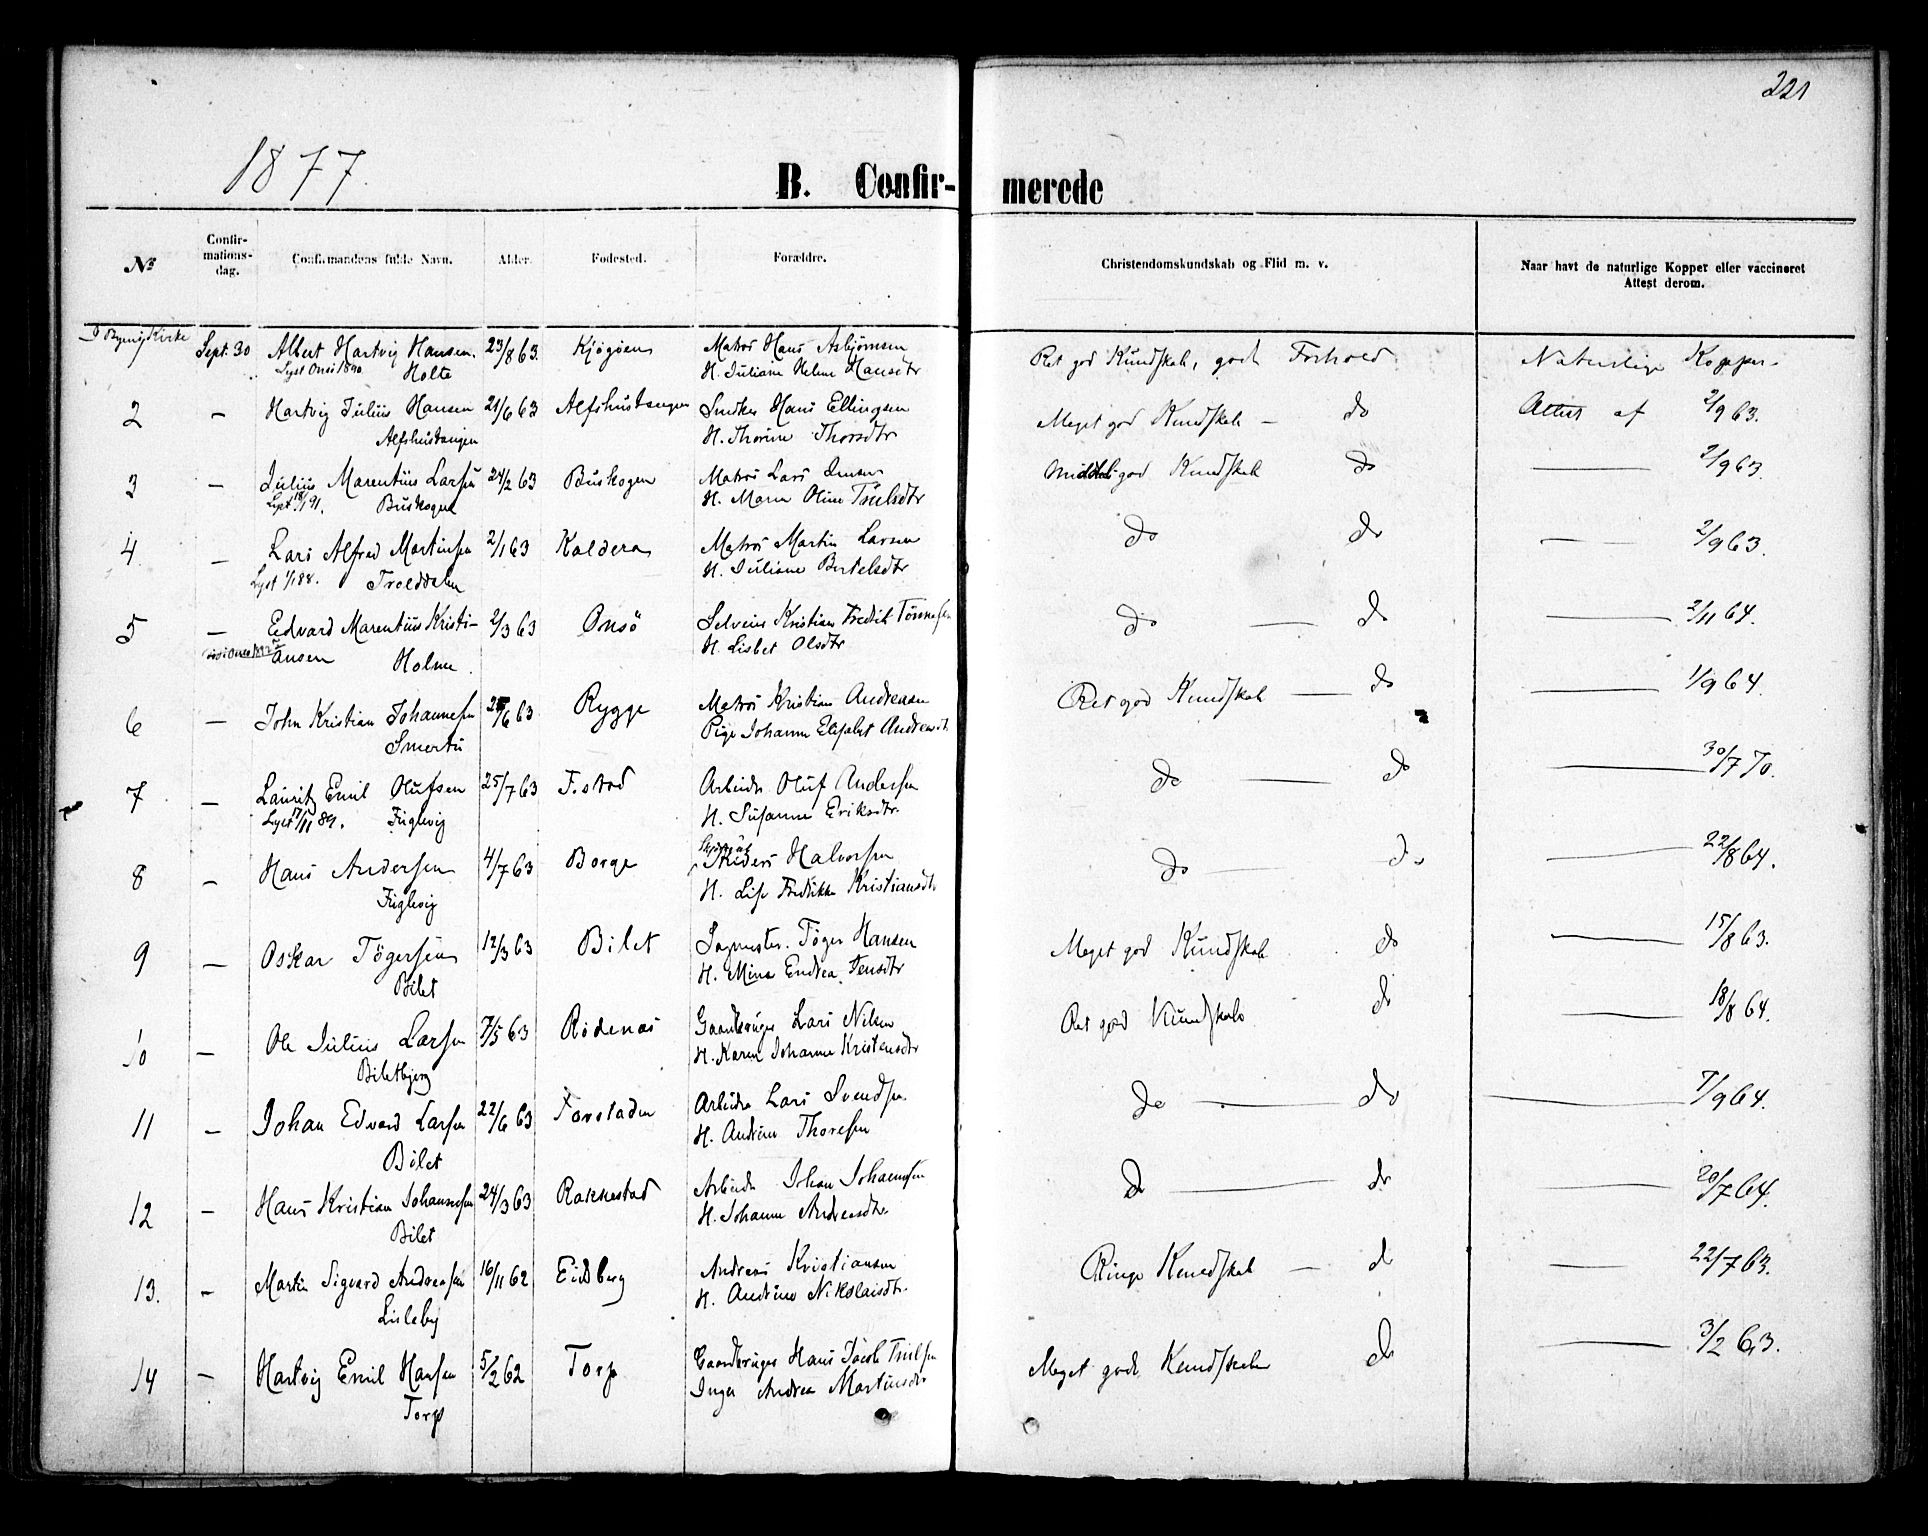 221
1877.
B. Confir- merede
No
Confir-
mations-
dag.
Confirmandens fulde Navn.
Alder.
Fødested.
Forældre.
Christendomskundskab og Flid m. v.
Naar havt de naturlige Kopper eller vaccineret
Attest derom.
Kirke Sept. 30 Albert Hartvig Hansen. 23/8 63. Kjøgøen Matros Hans Asbjørnsen Ret god Kundskab, godt Forhold Naturlige Kopper.
Lyst Onsø 1890 Holte H. Juliane Helene Hansdtr
2 - Hartvig Julius Hansen 21/6 63 Alfshustangen Snedker Hans Ellingsen Meget god Kundskab - do Attest af 2/9 63.
Alfshustangen H. Thorine Thorsdtr
3 - Julius Marentius Larsen 24/2 63 Buskogen Matros Lars Jensen Middel god Kundskab do — 2/9 63.
Lyst 18/1 91. Buskogen H. Maren Oline Truelsdtr
4 - Lars Alfred Martinsen 2/1 63 Kaldera Matros Martin Larsen do do — 2/9 63.
Lyst 1/1 88. Trolddalen H. Juliane Bertelsdtr
5 - Edvard Marentius Kristi- 2/3 63 Onsø Selveier Kristian Fredrik Tønnesen do — do — 2/11 64.
ansen Holme. H. Lisbet Olsdtr
6 - John Kristian Johannesen 6 63 Rygge Matros Kristian Andreasen Ret god Kundskab — do — 1/9 64.
Smertu Pige Johanne Elisabet Andreasdtr.
7 - Lauritz Emil Olufsen 25/7 63 F.stad Arbeider Oluf Andersen do — do — 30/7 70.
Lyst 17/11 89. Fuglevig H. Susanne Eriksdtr.
8 - Hans Andersen 4/7 63 Borge Anders Halvorsen do — do — 22/8 64.
Fuglevig H. Lise Fredrikke Kristiansdtr.
9 - Oskar Tøgersen 12/3 63 Bilet Sagmester. Tøger Hansen Meget god Kundskab do — 15/8 63.
Bilet H. Mina Endrea Jensdtr
10 - Ole Julius Larsen 7/5 63 Rødenæs Gaardbruger Lars Nilsen Ret god Kundskab do — 18/8 64.
Biletbjerg H. Karen Johanne Kristensdtr
11 - Johan Edvard Larsen 22/6 63 Torsladen Arbeider Lars Svendsen do — do — 7/9 64.
Bilet H. Andrine Thoresen
12 - Hans Kristian Johannesen 24/3 63 Rakkestad Arbeider Johan Johannesen do — do — 20/7 64.
Bilet H. Johanne Andreasdtr.
13. - Martin Sigvard Andreasen 16/11 62 Eidsberg Andreas Kristiansen Ringe Kundskab — do — 22/7 63.
Lisleby H. Andrine Nikolaisdtr.
14 - Hartvig Emil Hansen 5/2 62 Torp Gaardbruger Hans Jacob Truelsen Meget god Kundskab do — 3/2 63.
Torp Inger Andrea Martinsdtr